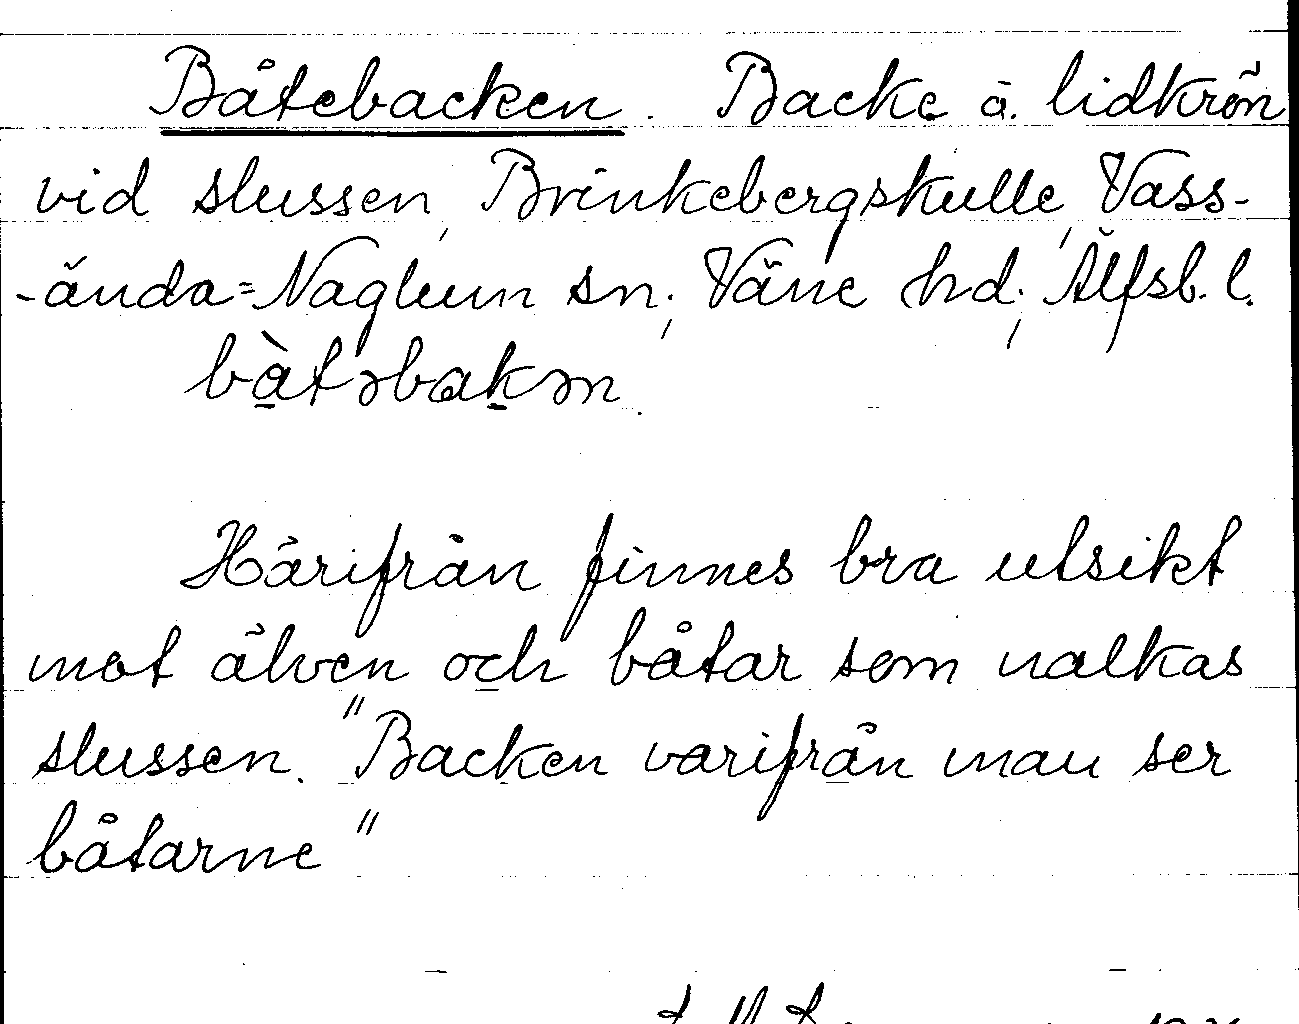 Båtebacken. Backe å. lidkrön
vid slussen, Brinkebergskulle, Vass-
-ända=Naglum sn; Väne hd; Älfsb. l.
bàtəbakən.
Härifrån finnes bra utsikt
mot älven och båtar som nalkas
slussen. "Backen varifrån man ser
båtarne"